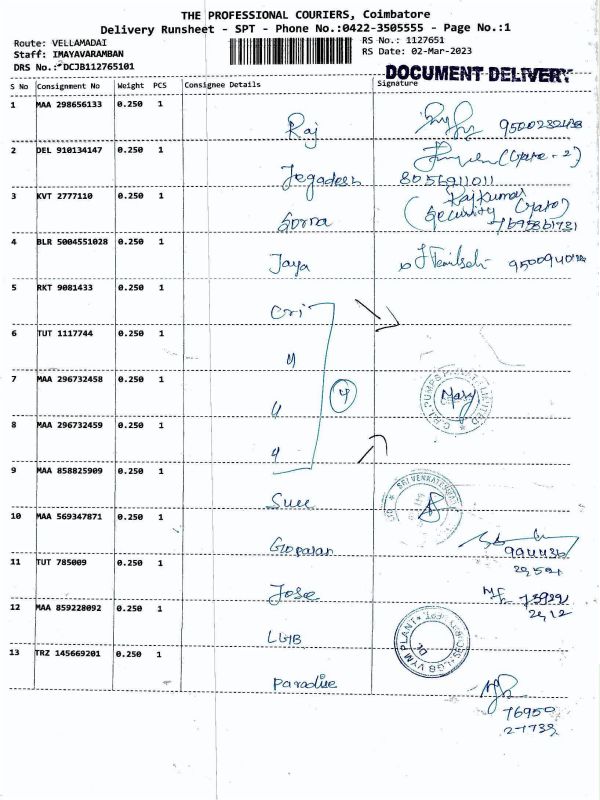 THE PROFESSIONAL COURIERS, Coimbatore
Delivery Runsheet - SPT - Phone No.:0422-3505555 - Page No.:1
Route: VELLAMADAI
RS No.: 1127651
Staff: IMAYAVARAMBAN
RS Date: 02-Mar-2023
DRS No.: DCJB112765101
DOCUMENT DELIVERY
S No Consignment No Weight PCS Consignee Details Signature
1 MAA 298656133 0.250 1
Raj
2 DEL 910134147 0.250 1
Jegadesh (Gate - 2)
8056911011
3 KVT 2777110 0.250 1
Sorna Rajkumar
Security
4 BLR 5004551028 0.250 1
Jaya
5 RKT 9081433 0.250 1
Cri
6 TUT 1117744 0.250 1
"
7 MAA 296732458 0.250 1
"
4
Mary
8 MAA 296732459 0.250 1
"
9 MAA 858825909 0.250 1
SRI VENKATESWARA
10 MAA 569347871 0.250 1
Gopalan
11 TUT 785009 0.250 1
Jose
12 MAA 859228092 0.250 1
LGB
LGB VYM PLANT
13 TRZ 145669201 0.250 1
Paradise
76950
27739